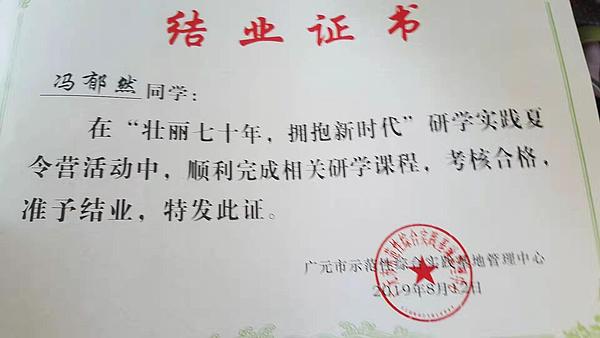 结业证书
冯郁然同学：
在“壮丽七十年，拥抱新时代”研学实践夏
令营活动中，顺利完成相关研学课程，考核合格，
准予结业，特发此证。
广元市示范性综合实践基地管理中心
2019年8月12日